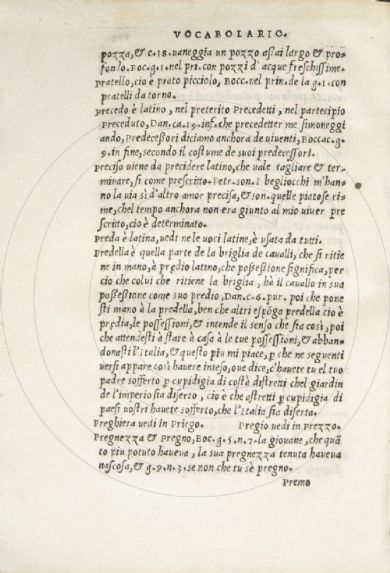 VOCABOLARIO.
pozza, & c.18. vaneggia un pozzo aßai largo, & pro-
fondo. Boc.g.1.nel pri.con pozzi d'acque freschissime.
Pratello, cio è prato picciolo, Bocc.nel prin.de la g.1.con
pratelli da torno.
Precedo è latino, nel preterito Precedetti, nel partecipio
Preceduto, Dan.ca.19.inf.che precedetter me simoneggi
ando, Predeceßori diciamo anchora de viventi, Boccac.g.
9.in fine, secondo il costume de suoi predecessori.
Preciso viene da precidere latino, che vale tagliare & ter-
minare, si come prescritto. Petr.son.I begliocchi m'han-
no la via sì d'altro amor precisa, & son.quelle pietose ri-
me, chel tempo anchora non era giunto al mio viver pre
scritto, cio è determinato.
Preda è latina, vedi ne le voci latine, è usata da tutti.
Predella è quella parte de la briglia de cavalli, che si ritie
ne in mano, è predio latino, che poßeßione significa, per
cio che colui che ritiene la briglia, hà il cavallo in sua
poßeßione come suo predio, Dan.c.6.pur.poi che pone
sti mano à la predella, ben che altri espōga predella cio è
predia, le possessioni, & intende il senso che sia così, poi
che attendesti à stare à casa à le tue possessioni, & abban-
donasti l'Italia, & questo piu mi piace, p che ne seguenti
versi appare così havere inteso, ove dice, c'havete tu el tuo
padre sofferto p cupidigia di costà distretti chel giardin
de l'imperio sia diserto, cio è che astretti p cupidigia di
paesi nostri havete sofferto, che l'Italia sia diserta.
Preghiera vedi in Priego. Pregio vedi in Prezzo.
Pregnezza, & Pregno, Boc.g.5.n.7.la giovane, che quā
to piu potuto haveva, la sua pregnezza tenuta haveva
nascosa, & g.9.n.3.se non che tu sè pregno.
Premo